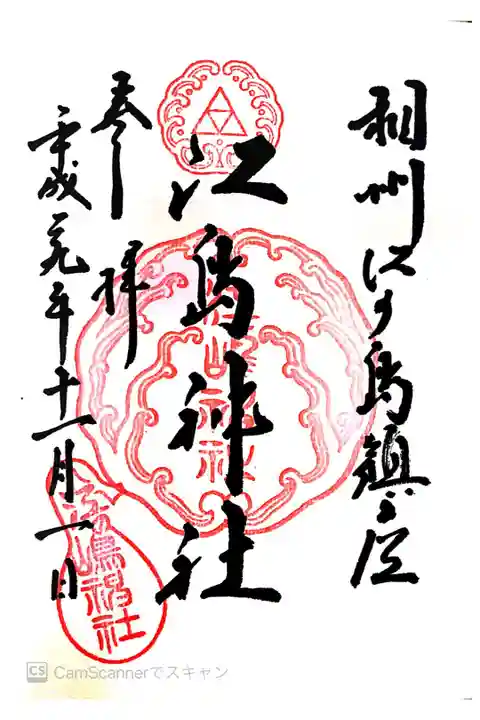 相州江の島鎮座
江島神社
奉拝
平成二九年十一月一日
江嶋神社
江嶋神社
CS CamScannerでスキャン